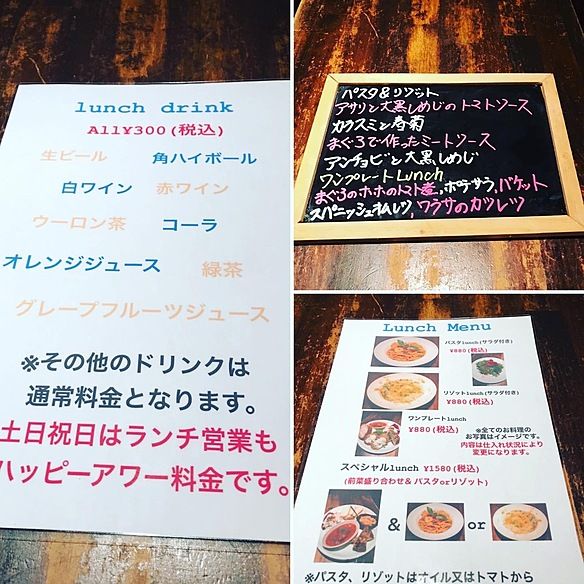 lunch drink
All¥300(税込)
生ビール 角ハイボール
白ワイン 赤ワイン
ウーロン茶 コーラ
オレンジジュース 緑茶
グレープフルーツジュース
※その他のドリンクは
通常料金となります。
土日祝日はランチ営業も
ハッピーアワー料金です。
パスタ&リゾット
アサリと大黒しめじのトマトソース
カラスミと春菊
まぐろで作ったミートソース
アンチョビと大黒しめじ
ワンプレートLunch
まぐろのホホのトマト煮,ポテサラ,バケット
スパニッシュオムレツ,ワラサのカツレツ
Lunch Menu
パスタlunch(サラダ付き)
¥880(税込)
リゾットlunch(サラダ付き)
¥880(税込)
ワンプレートlunch
¥880(税込)
※全てのお料理の
お写真はイメージです。
内容は仕入れ状況により
変更になります。
スペシャルlunch ¥1580(税込)
(前菜盛り合わせ& パスタorリゾット)
& or
※パスタ、リゾットはオイル又はトマトから